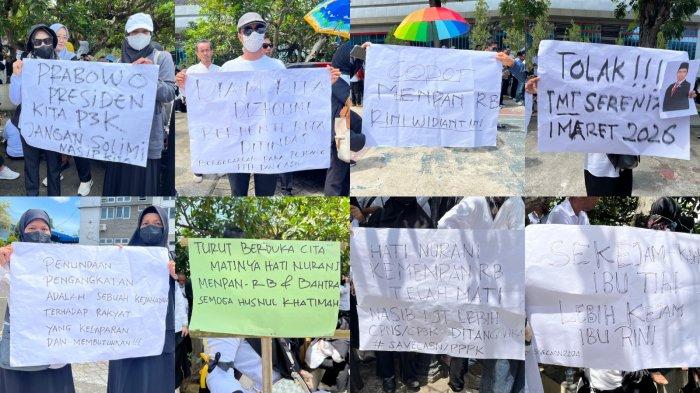 PRABOWO
PRESIDEN
KITA P3K
JANGAN DOLIMI
NASIB KITA
DIAM KITA
DIZHOLIMI
BERHENTI KITA
DITINDAS
COPOT
MENPAN RB
RINI WIDIANTI!!!
TOLAK!!!
TMT SERENTAK
1 MARET 2026
PENUNDAAN
PENGANGKATAN
ADALAH SEBUAH KEJAHATAN
TERHADAP RAKYAT
YANG KELAPARAN
DAN MEMBUTUHKAN!!!
TURUT BERDUKA CITA
MATINYA HATI NURANI
MENPAN-RB & BAHTRA
SEMOGA HUSNUL KHATIMAH
HATI NURANI
KEMENPAN RB
TELAH MATI
NASIB 1JT LEBIH
CPNS/CP3K DITANGGUHKAN
# SAVECASN/PPPK
SEKEJAM-KEJAM
IBU TIRI
LEBIH KEJAM
IBU RINI